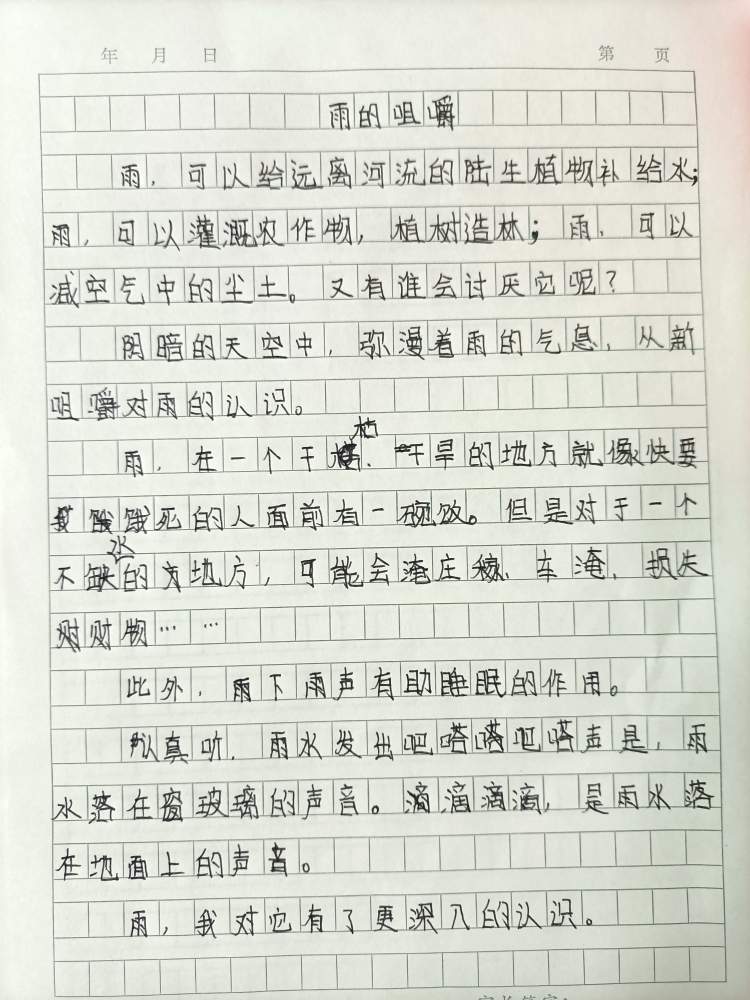 年 月 日 第 页
雨的咀嚼
雨，可以给远离河流的陆生植物补给水；
雨，可以灌溉农作物，植树造林；雨，可以
减空气中的尘土。又有谁会讨厌它呢？
阴暗的天空中，弥漫着雨的气息，从新
咀嚼对雨的认识。
雨，在一个干枯、干旱的地方就像快要
饿饿死的人面前有一碗饭。但是对于一个
不缺水的地方，可能会淹庄稼、车淹、损失
财财物……
此外，雨下雨声有助睡眠的作用。
认真听，雨水发出吧嗒嗒吧嗒声是，雨
水落在窗玻璃的声音。滴滴滴滴，是雨水落
在地面上的声音。
雨，我对它有了更深入的认识。